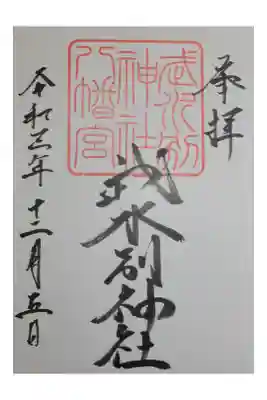 奉拝
武水別
神社
八幡宮
武水別神社
令和三年十二月五日